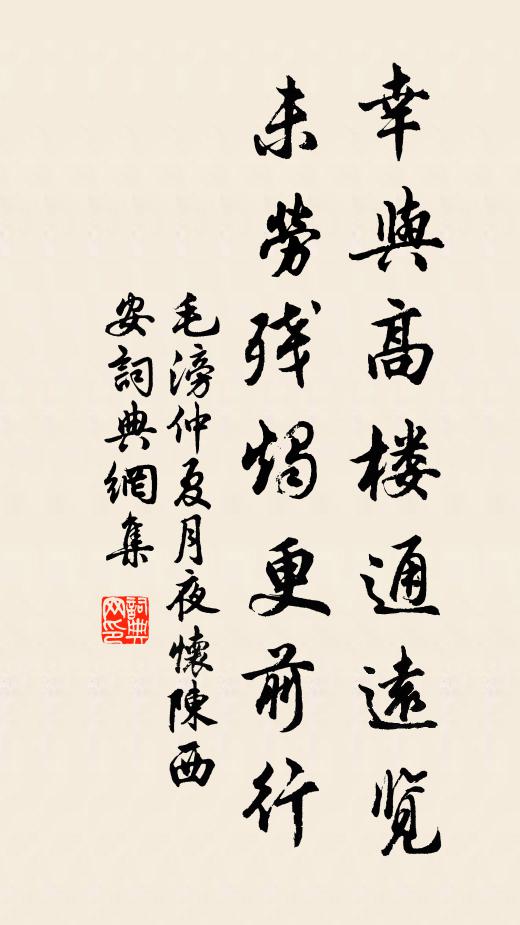 幸與高楼通遠览
未劳残烛更前行
毛滂仲夏月夜懷陳西
安詞典網集
詞典网印